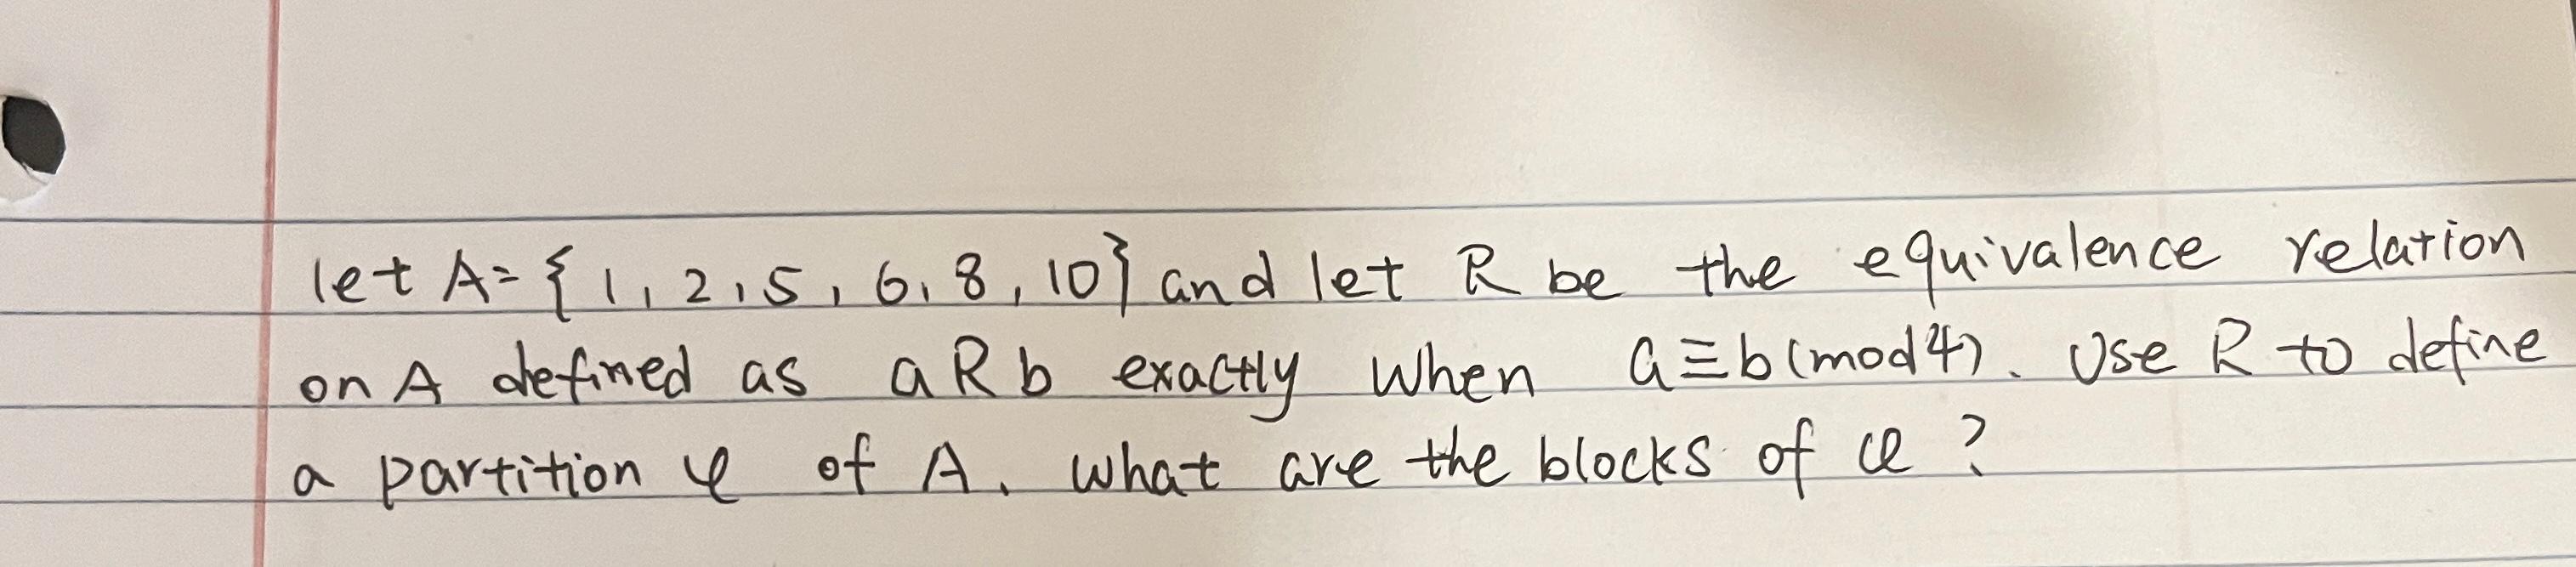 let A = { 1, 2, 5, 6, 8, 10} and let R be the equivalence relation
on A defined as a R b exactly when a ≡ b (mod 4). Use R to define
a partition φ of A. What are the blocks of φ ?